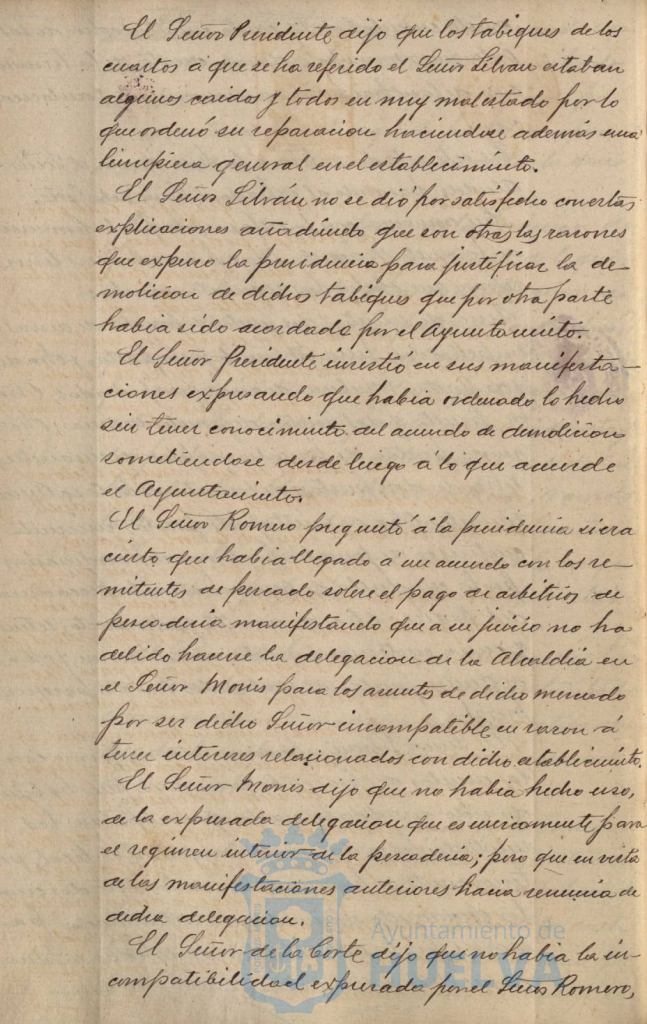 El Señor Presidente dijo que los tabiques de los
cuartos á que se ha referido el Señor Silvan estaban
algunos caidos y todos en muy mal estado por lo
que ordenó su reparacion haciendose además una
limpieza general en el establecimiento.
El Señor Silván no se dió por satisfecho con estas
explicaciones añadiendo que son otras las razones
que expuso la presidencia para justificar la de-
molicion de dichos tabiques que por otra parte
habia sido acordada por el Ayuntamiento.
El Señor Presidente insistió en sus manifesta-
ciones expresando que habia ordenado lo hecho
sin tener conocimiento del acuerdo de demolicion
sometiendose desde luego á lo que acuerde
el Ayuntamiento.
El Señor Romero preguntó á la presidencia si era
cierto que habia llegado á un acuerdo con los re-
mitentes de pescado sobre el pago de arbitrios de
pescaderia manifestando que a su juicio no ha
debido hacerse la delegacion de la Alcaldía en
el Señor Monis para los asuntos de dicho mercado
por ser dicho Señor incompatible en razon á
tener intereses relacionados con dicho establecimiento.
El Señor Monis dijo que no habia hecho uso,
de la expresada delegacion que es unicamente para
el régimen interior de la pescaderia; pero que en vista
de las manifestaciones anteriores hacia renuncia de
dicha delegacion.
El Señor de la Corte dijo que no habia la in-
compatibilidad expresada por el Señor Romero,
Ayuntamiento de
HUELVA